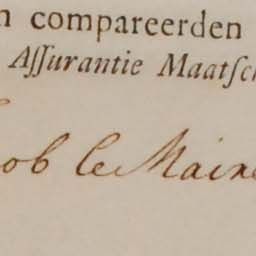 n compareerden
Aſſurantie Maatſch
ob le Maire